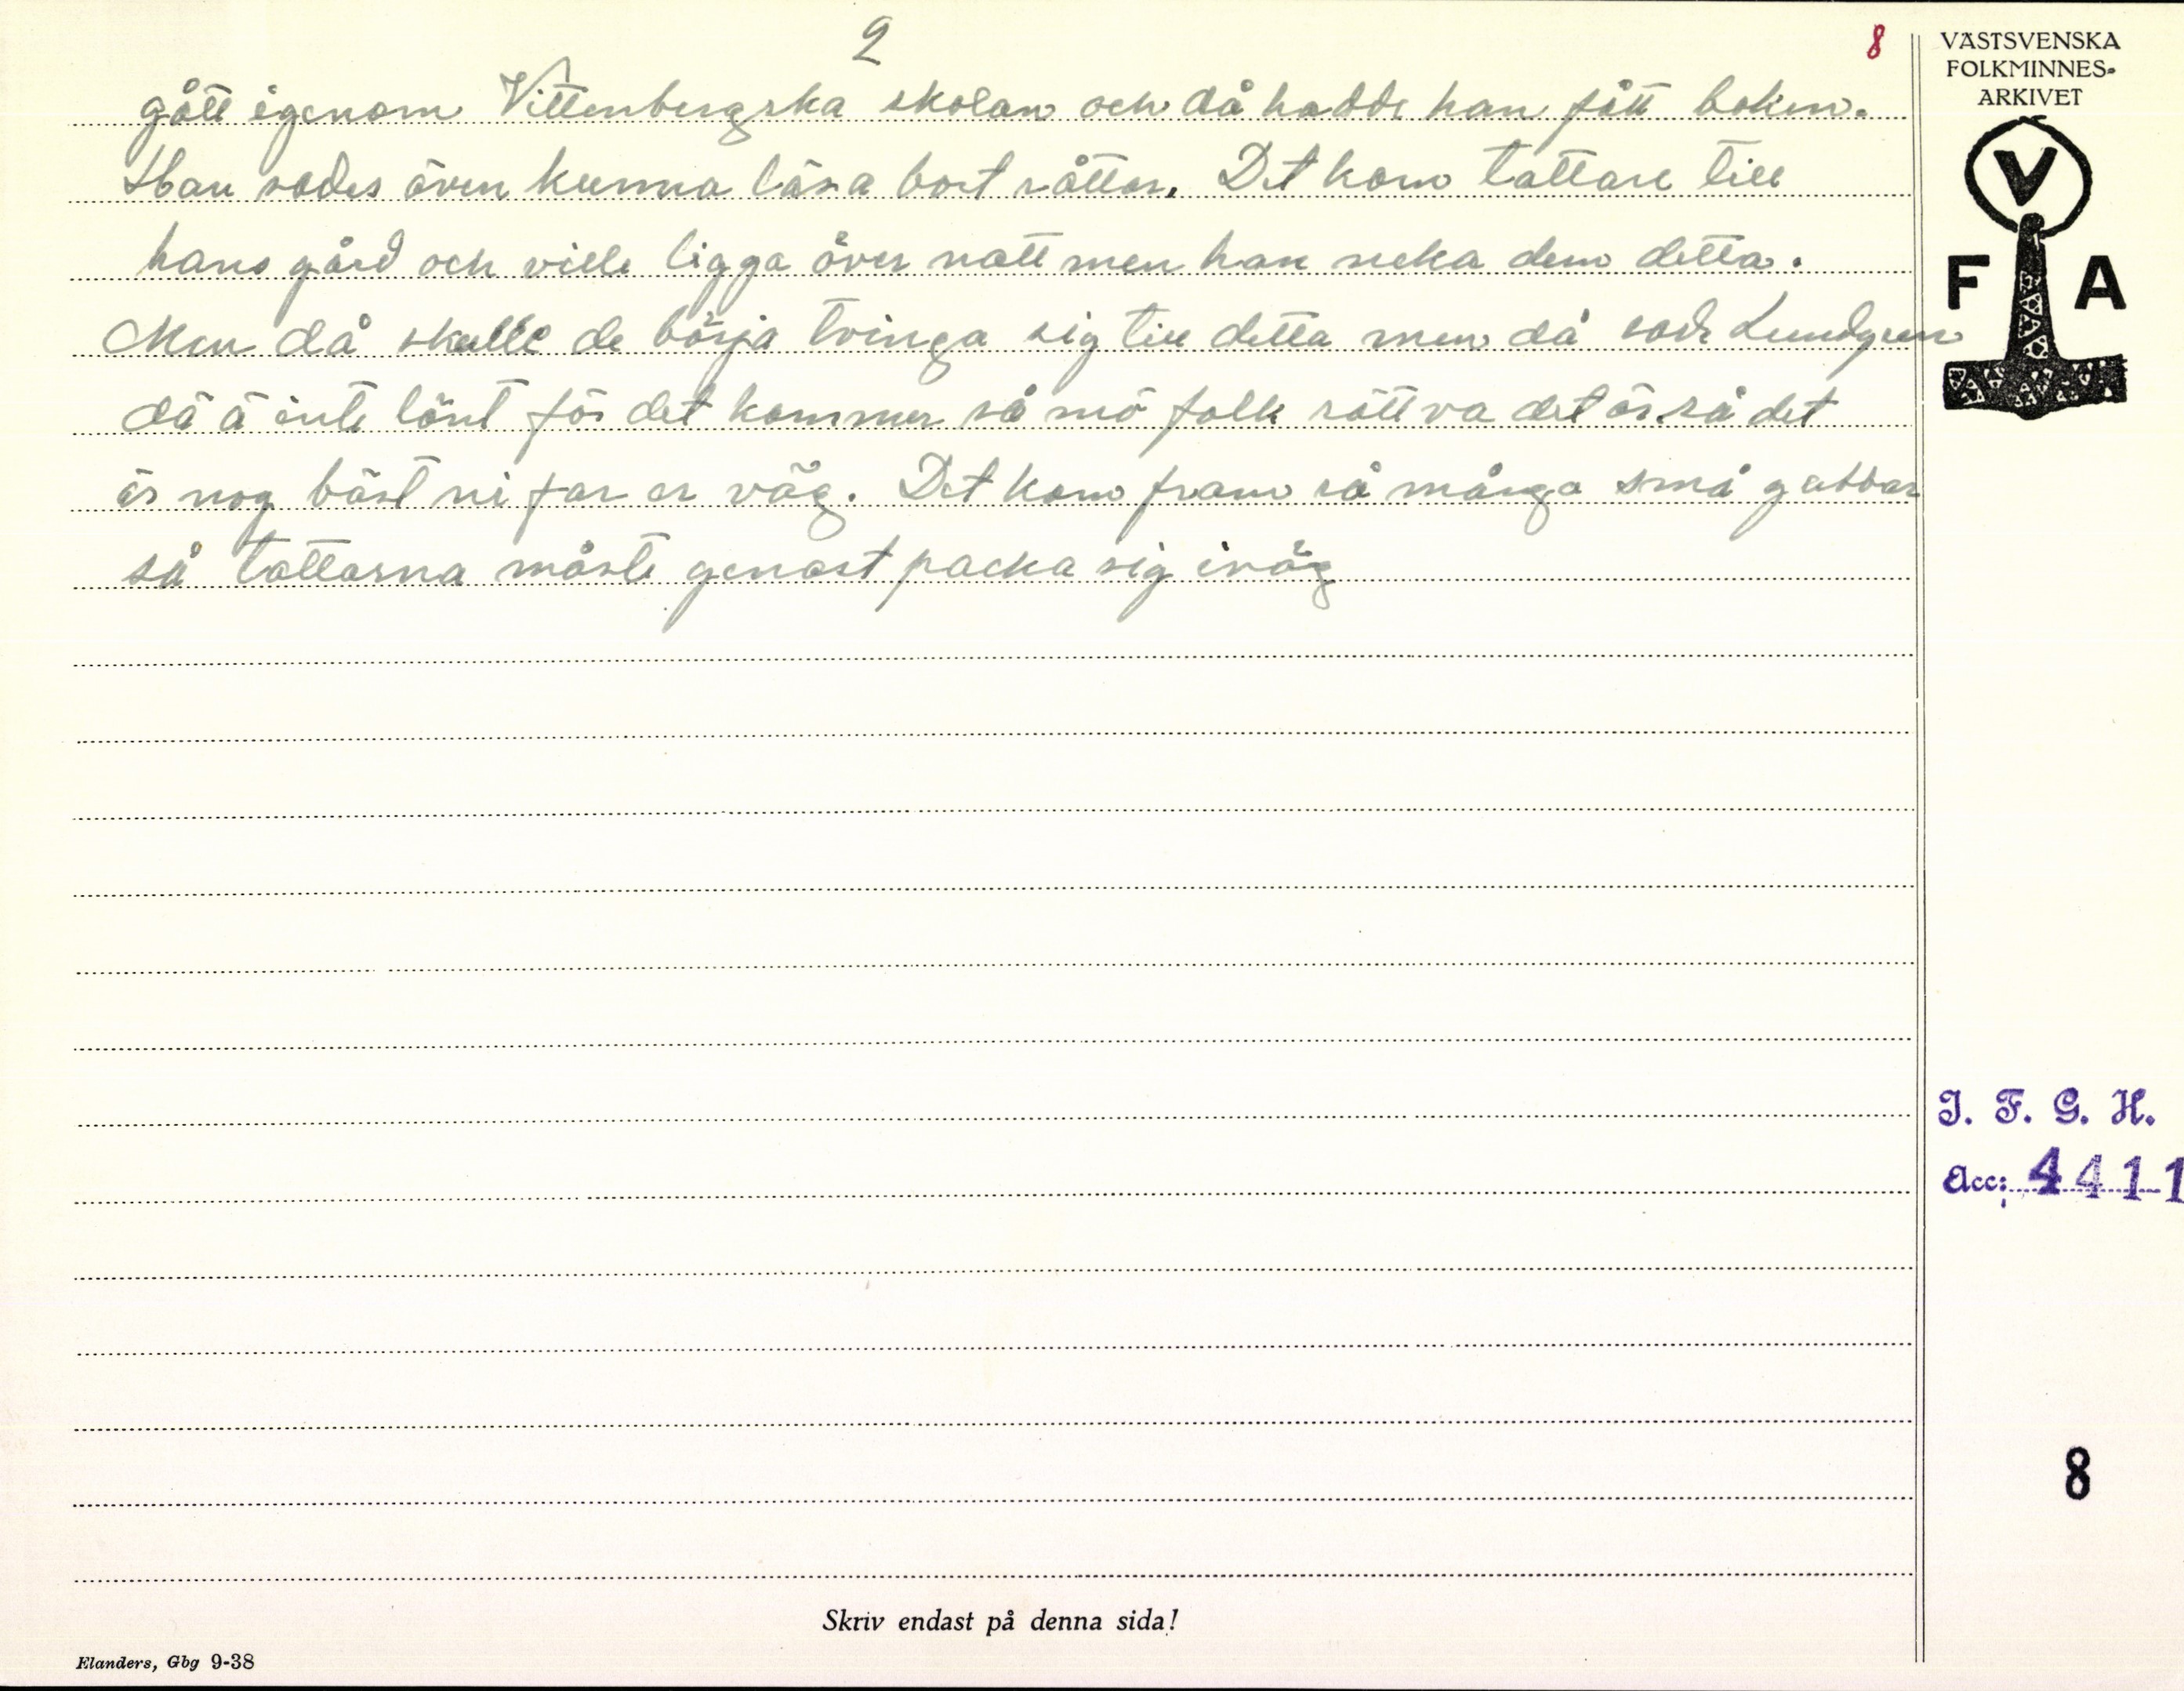 2
8
gått igenom Vittenbergska skolan och då hadde han fått boken.
Han sades även kunna läsa bort råttor. Det kom tattare till
hans gård och ville ligga över natt men han neka dem detta.
Men då skulle de börja tvinga sig till detta men då sade Lundgren
dä ä inte lönt för det kommer så mö folk rätt va det är så det
är nog bäst ni far er väg. Det kom fram så många små gubbar
så tattarna måste genast packa sig iväg
VÄSTSVENSKA
FOLKMINNES-
ARKIVET
V
F A
I. F. G. H.
Acc: 4411
8
Skriv endast på denna sida!
Elanders, Gbg 9-38